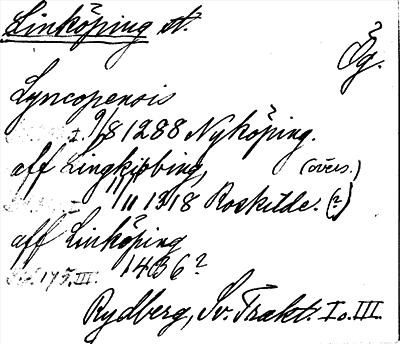 Linköping st.
Ög.
Lyncopensis
I 9/8 1288 Nyköping.
aff Lingkiøbing, (övers.)
11/11 1318 Roskilde. (?)
aff Linköping
175. III. 1436?
Rydberg, Sv. Trakt. I o. III.